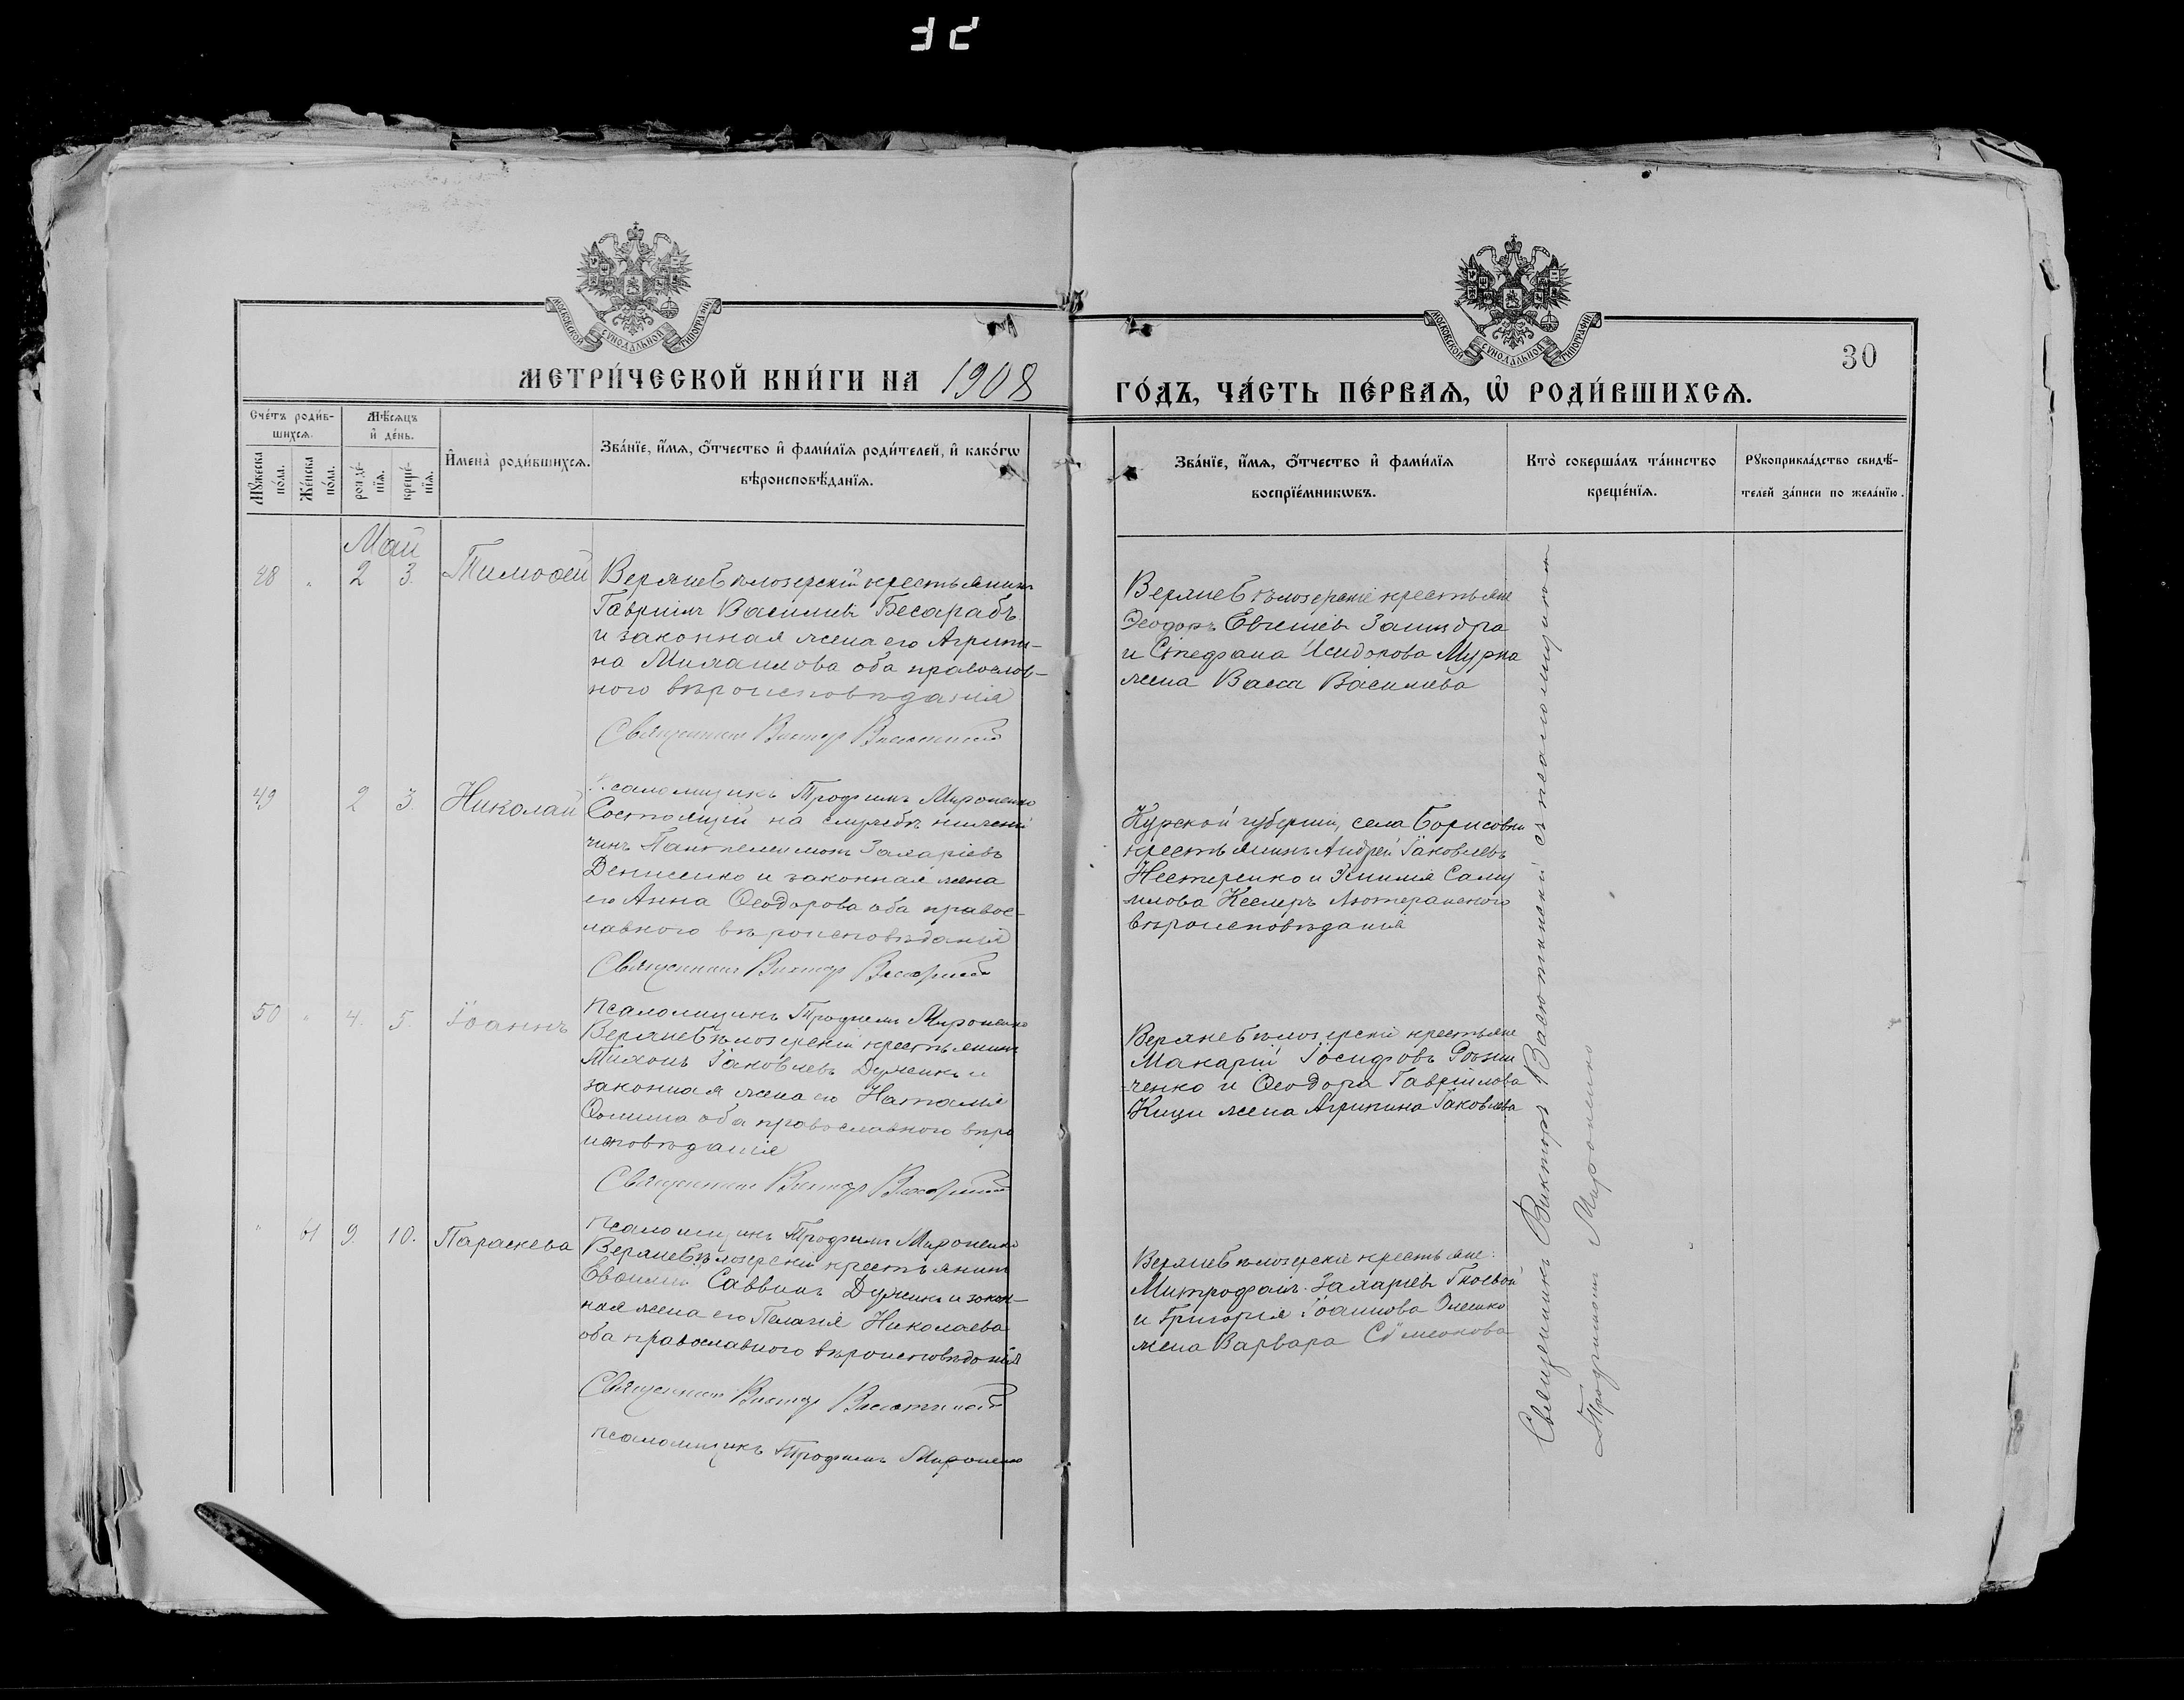 30
МЕТРИ́ЧЕСКОЙ КНИ́ГИ НА 1908
ГО́ДЪ, ЧА́СТЬ ПЕ́РВАЯ, Ѡ҆ РОДИ́ВШИХСЯ.
Сче́тъ роди́в-
шихся.
Мѣ́сяцъ
и҆ де́нь.
Мꙋ́жеска
по́ла.
Же́нска
по́ла.
рожде́-
нїѧ.
креще́-
нїѧ.
И҆мена̀ роди́вшихся.
Зва́нїе, и҆́мя, ѻ҆́тчество и҆ фами́лїя роди́телей, и҆ како́гѡ
вѣроисповѣ́данїя.
Зва́нїе, и҆́мя, ѻ҆́тчество и҆ фами́лїя
воспрїе́мникѡвъ.
Кто̀ соверша́лъ та́инство
креще́нїя.
Рꙋкоприкла́дство свидѣ́-
телей за́писи по жела́нїю.
Май
48 " 2 3. Тимоѳей
Верхнебѣлозерскій крестьянинъ
Гавріилъ Василіевъ Бесарабъ
и законная жена его Агрипи-
на Михаилова оба православ-
ного вѣроисповѣданія
Священникъ Викторъ
Верхнебѣлозерскіе крестьяне
Ѳеодоръ
и Стефана Исидорова Мурка
жена Васса Василиева
49 2 3. Николай
Псаломщикъ Трофимъ Мироненко
Состоящій на службѣ
чинъ Пантелеимонъ Захаріевъ
Денисенко и законная жена
его Анна Ѳеодорова оба правос-
лавного вѣроисповѣданія
Священникъ Викторъ
Курской губерніи, села Борисовки
крестьянинъ Андрей Іаковлевъ
Нестеренко и Эмилія
Кеслеръ Лютеранского
вѣроисповѣданія
50 " 4. 5. Іоаннъ
Псаломщикъ Трофимъ Мироненко
Верхнебѣлозерскій крестьянинъ
Іаковлевъ Дужикъ и
законная жена его Наталія
Ѳомина оба православного вѣро
исповѣданія
Священникъ Викторъ
Верхнебѣлозерскіе крестьяне
Макарій Іосифовъ
ченко и Ѳеодора Гавріилова
Кици жена Агрипина Іаковлева
" 9. 10. Параскева
Псаломщикъ Трофимъ Мироненко
Верхнебѣлозерскій крестьянинъ
Саввинъ Дужикъ и закон-
ная жена его Пелагія Николаева
оба православного вѣроисповѣданія
Священникъ Викторъ
Псаломщикъ Трофимъ Мироненко
Верхнебѣлозерскіе крестьяне:
Митрофанъ Захаріевъ Гноевой
и Григорія Іоаннова
жена Варвара Сѵмеонова
Священникъ Викторъ съ псаломщикомъ
Трофимомъ Мироненко